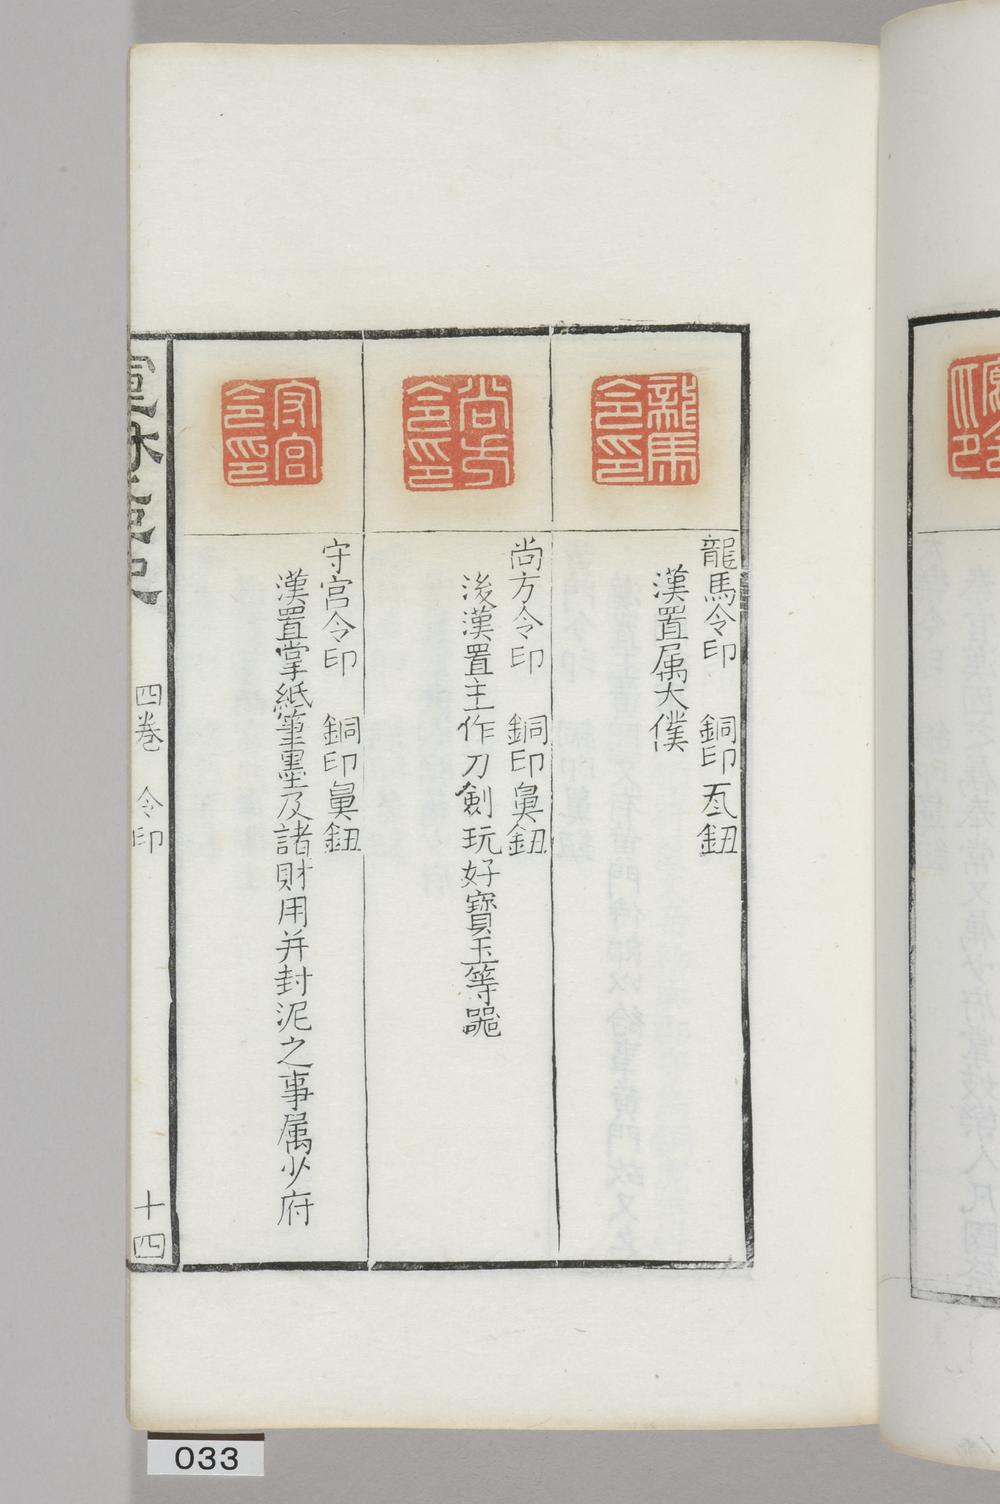 龍馬令印
龍馬令印　銅印瓦鈕
漢置属大僕
尚方令印
尚方令印　銅印鼻鈕
後漢置主作刀劍玩好寶玉等器
守宮令印
守宮令印　銅印鼻鈕
漢置掌紙筆墨及諸財用并封泥之事属少府
四卷　令印
十四
033